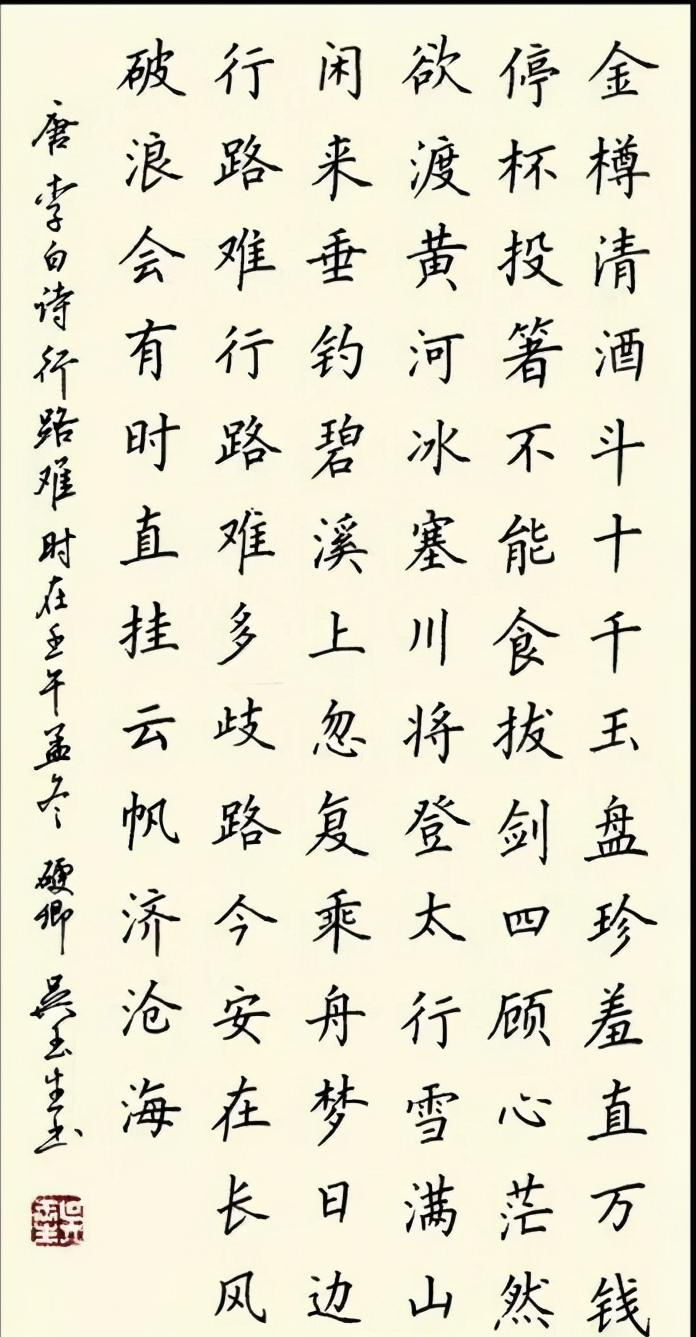 金樽清酒斗十千玉盘珍羞直万钱
停杯投箸不能食拔剑四顾心茫然
欲渡黄河冰塞川将登太行雪满山
闲来垂钓碧溪上忽复乘舟梦日边
行路难行路难多歧路今安在长风
破浪会有时直挂云帆济沧海
唐李白诗行路难时在壬午孟冬硬卿吴玉生书